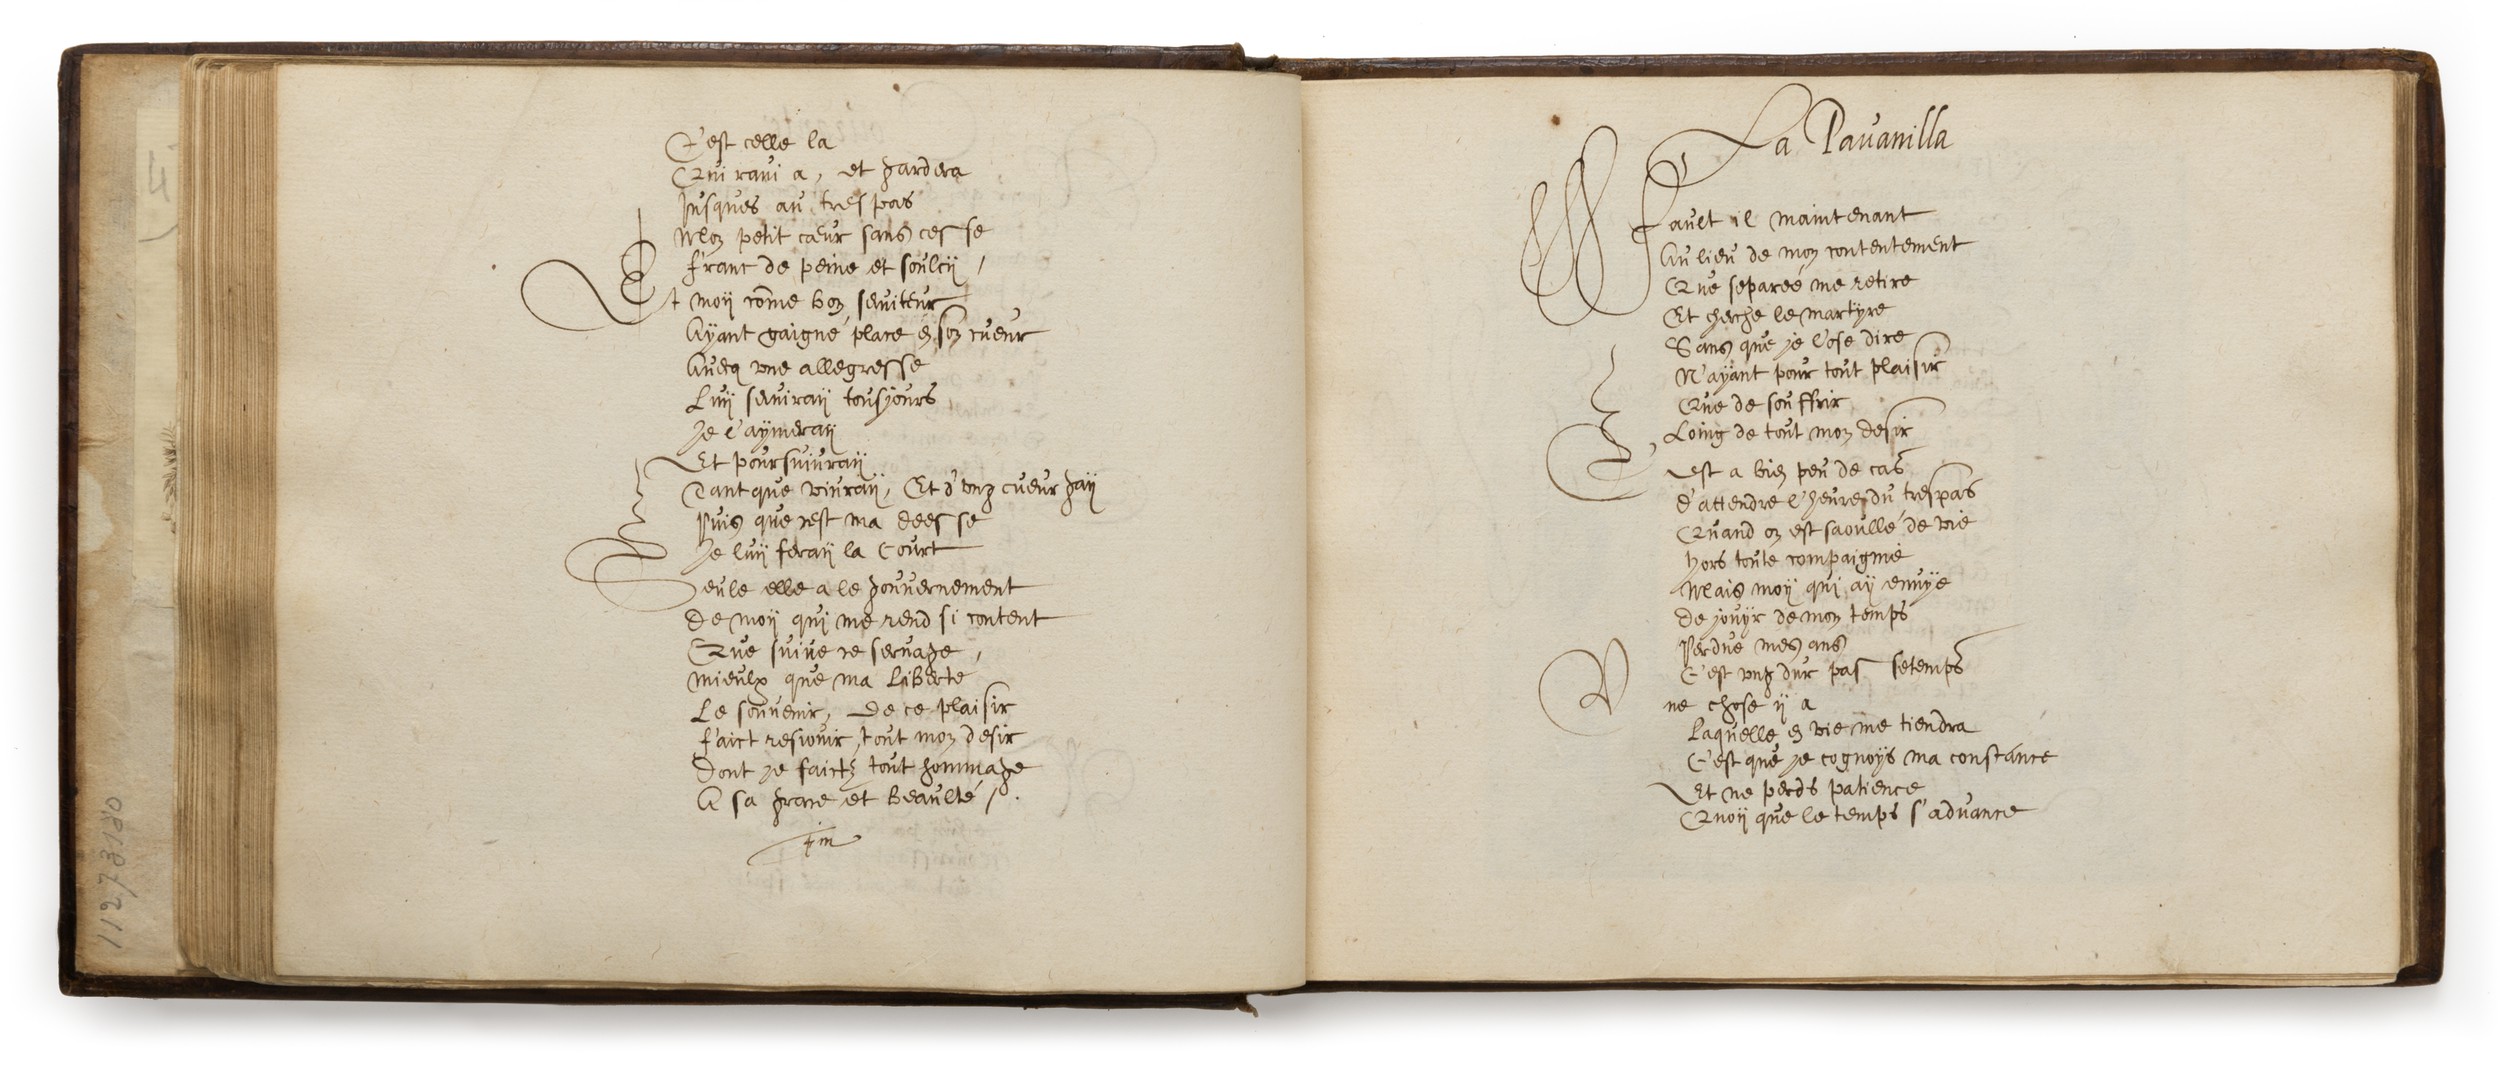 C'est celle la
Qui ravi a, et gardera
Jusques au trespas
Mon petit cœur sans cesse
franc de peine et soulcÿ /
Et moÿ cōme bon serviteur
Aÿant gaigné place en son cueur
Avecq une allegresse
Luÿ serviraÿ tousjours
Je l'aÿmeraÿ
Et poursuivraÿ
Tant que vivraÿ, Et d'ung cueur gaÿ
Puis que c'est ma deesse
Je luÿ feraÿ la Court
Seule elle a le gouvernement
De moÿ qui me rend si content
Que suive ce servage,
mieulx que ma Liberte
Le souvenir, De ce plaisir
faict resiouir, tout mon desir
Dont je faictz tout hommage
A sa grace et Beaulté /.
Fin
La Pavanilla
Fault il maintenant
Au lieu de mon contentement
Que separeé me retire
Et cherche le martÿre
Sans que je l'ose dire
N'aÿant pour tout plaisir
Que de souffrir
Loing de tout mon desir
C'est a bien peu de cas
d'attendre l'heure du trespas
Quand on est saoullé de vie
hors toute compaignie
Mais moÿ qui aÿ envÿe
De jouÿr de mon temps
Perdue mes ans
C'est ung dur passetemps
Une chose ÿ a
Laquelle en vie me tiendra
C'est que je cognoÿs ma constance
Et ne perds patience
Quoÿ que le temps s'advance
1127/3180